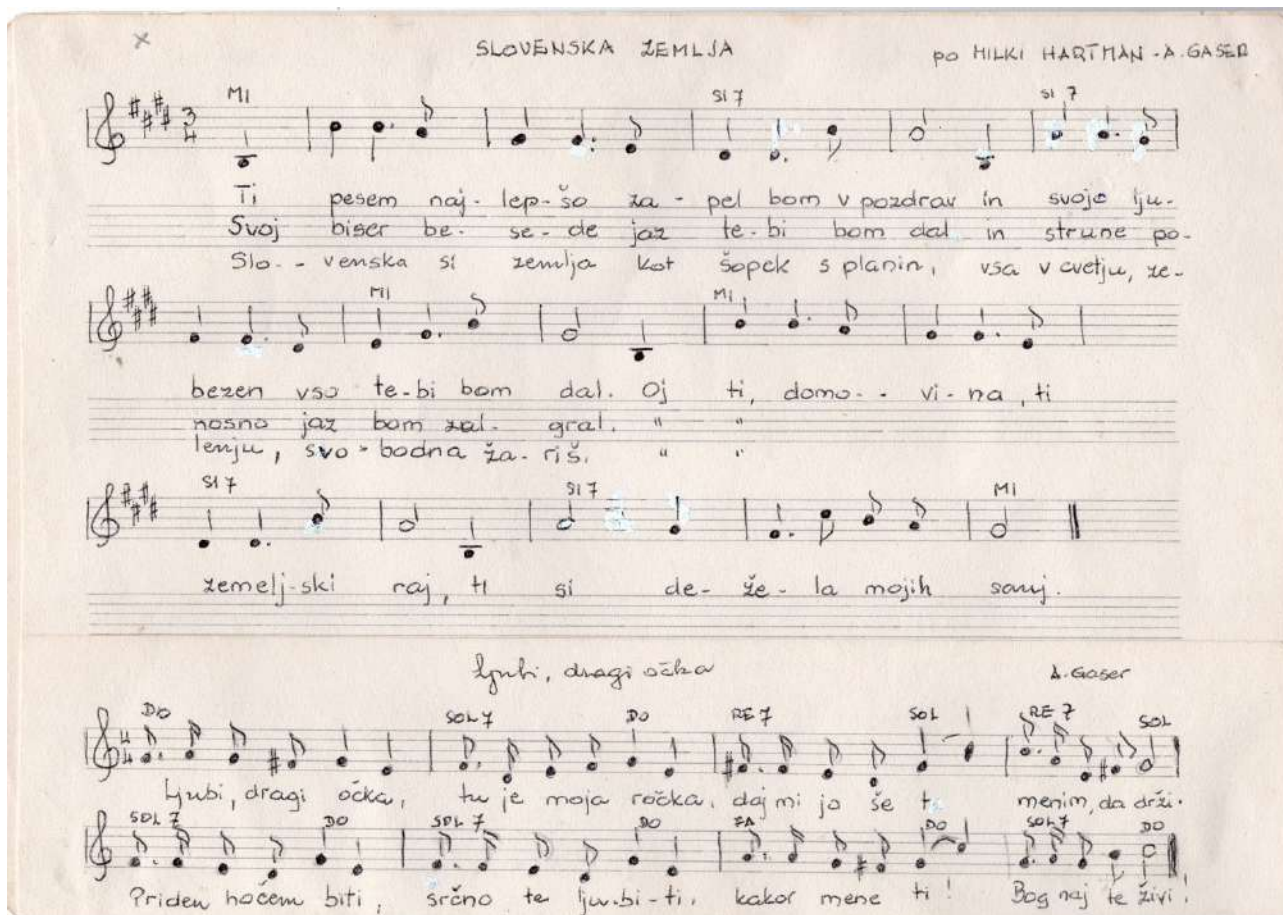 SLOVENSKA ZEMLJA
po MILKI HARTMAN - A. GASER
MI SI 7 SI 7
3
4
Ti pesem naj-lep-šo za-pel bom v pozdrav in svojo lju-
Svoj biser be-se-de jaz te-bi bom dal in strune po-
Slo-- venska si zemlja kot šopek s planin, vsa v cvetju, ze-
MI MI
bezen vso te-bi bom dal. Oj ti, domo-- vi-na, ti
nosno jaz bom zai-gral. " "
lenju, svo-bodna ža-riš. " "
SI 7 SI 7 MI
zemelj-ski raj, ti si de-že-la mojih sanj.
Ljubi, dragi očka
A. Gaser
DO SOL 7 DO RE 7 SOL RE 7 SOL
4
4
Ljubi, dragi očka, tu je moja ročka, daj mi jo še t menim, da drži.
SOL 7 DO SOL 7 DO FA DO SOL 7 DO
Priden hočem biti, srčno te lju-bi-ti, kakor mene ti! Bog naj te živi!